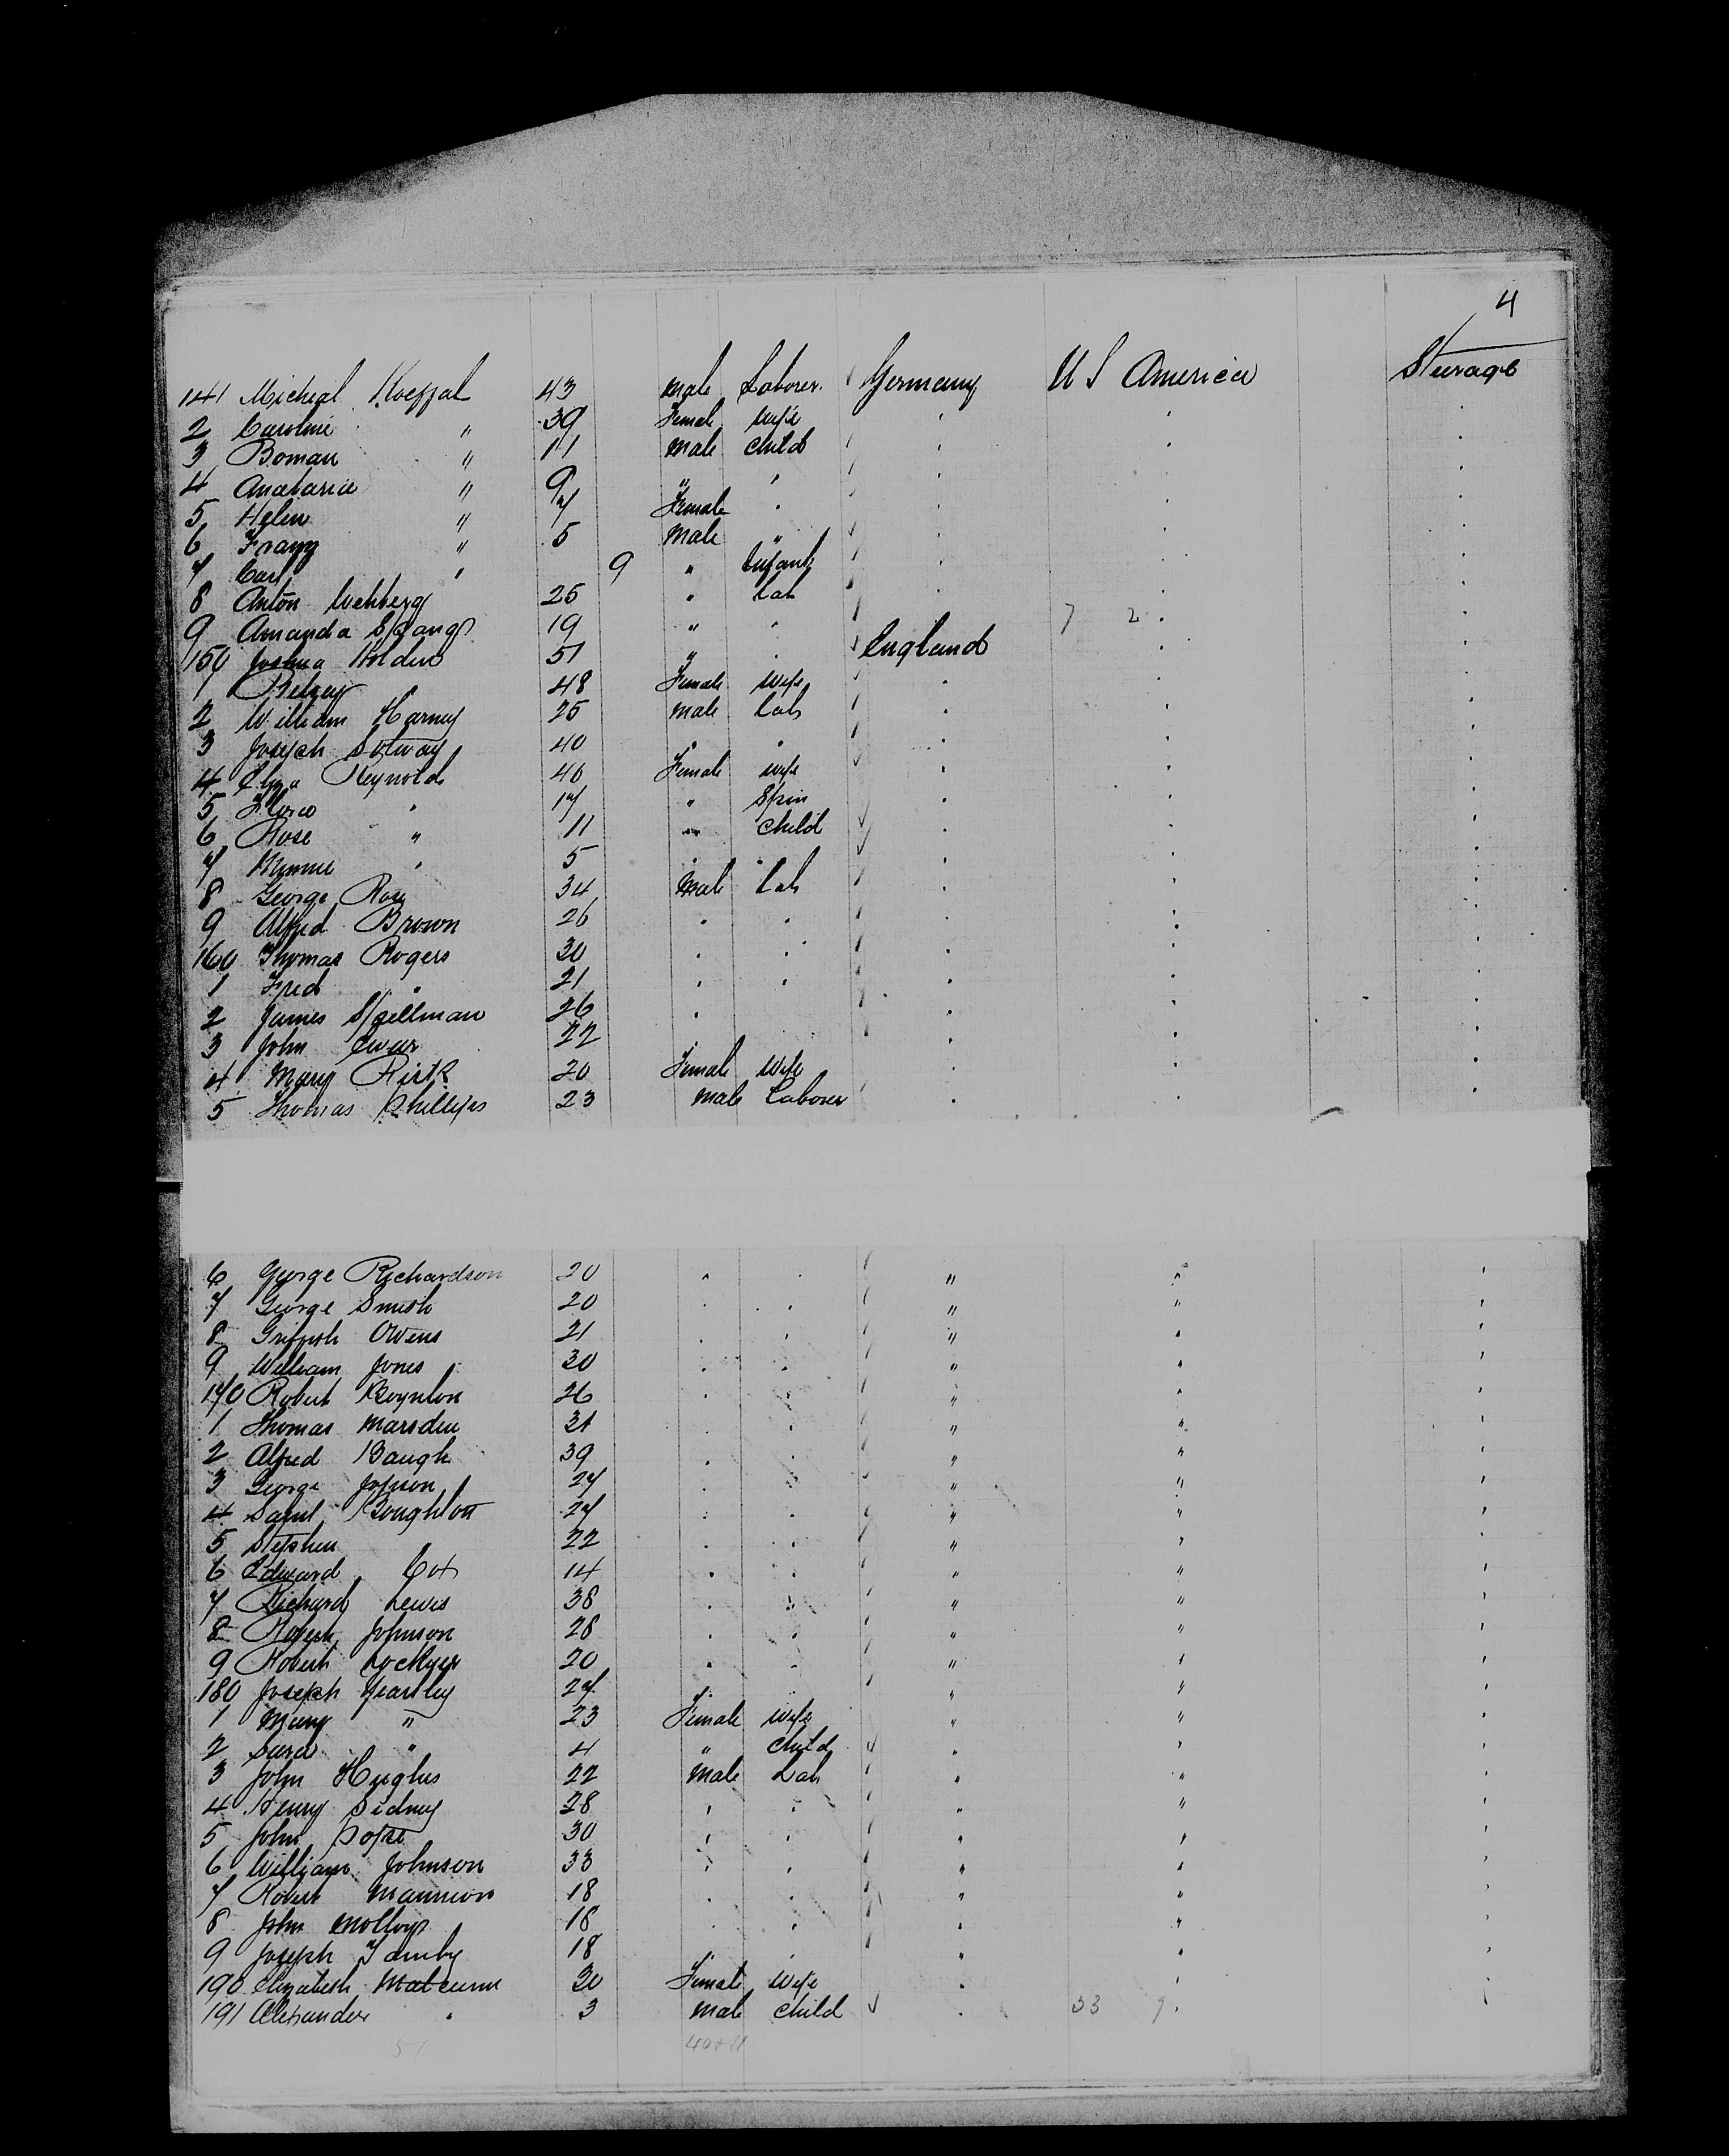 4
141 Micheal Koeppal 43 Male Laborer Germany U S America Sterage
2 Caroline " 39 Female Wife
3 Roman " 11 Male Child
4 " 9 "
5 Helen " 7 Female
6 Franz " 5 Male "
7 Carl " 9 " Infant
8 Anton 25 " Lab
9 Amanda Spang 19 " 7 2
150 Joshua Holden 51 " England
1 Betsey " 48 Female Wife
2 William Harney 25 Male Lab
3 Joseph Solway 40 " "
4 Eliza Reynolds 40 Female Wife
5 Flora " 17 " Spin
6 Rose " 11 " Child
7 Minnie " 5 " "
8 George Rose 34 Male Lab
9 Alfred Brown 26 " "
160 Thomas Rogers 30 " "
1 Fred " 21 " "
2 James Spellman 26 "
3 John 22
4 Mary Kirk 20 Female Wife
5 Thomas Phillips 23 Male Laborer
6 George Richardson 20 " " " "
7 George Smith 20 " " " "
8 Griffith Owens 21 " " " "
9 William Jones 30 " " " "
170 Robert Boynton 26 " " " "
1 Thomas Marsden 31 " " " "
2 Alfred Baugh 39 " " " "
3 George Jopson 27 " " " "
4 Saml Boughton 27 " " " "
5 Stephen 22 " " " "
6 Edward Cox 14 " " " "
7 Richard Lewis 38 " " " "
8 Robert Johnson 28 " " " "
9 Robert Lockyer 20 " " " "
180 Joseph Yearsley 27 " " " "
1 Mary " 23 Female Wife " "
2 Sara " 4 " Child " "
3 John Hughes 22 Male Lab " "
4 Henry Sidney 28 " " " "
5 John Pope 30 " " " "
6 William Johnson 33 " " " "
7 Robert Mannion 18 " " " "
8 John Molloy 18 " " " "
9 Joseph 18 " " " "
190 Elizabeth 30 Female Wife " "
191 Alexander " 3 Male Child " 33 9 "